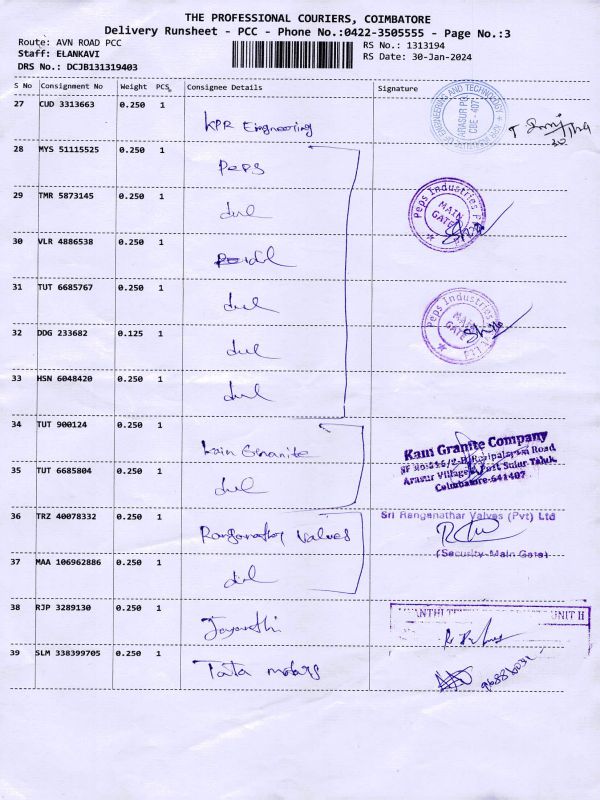 THE PROFESSIONAL COURIERS, COIMBATORE
Delivery Runsheet - PCC - Phone No.:0422-3505555 - Page No.:3
Route: AVN ROAD PCC
RS No.: 1313194
Staff: ELANKAVI
RS Date: 30-Jan-2024
DRS No.: DCJB131319403
S No Consignment No Weight PCS Consignee Details Signature
27 CUD 3313663 0.250 1 KPR Engineering
ENGINEERING AND TECHNOLOGY
ARASUR PO
CBE - 407
28 MYS 51115525 0.250 1 Peps
29 TMR 5873145 0.250 1
Peps Industries
MAIN
GATE
30 VLR 4886538 0.250 1
31 TUT 6685767 0.250 1
Peps Industries
MAIN
GATE
32 DDG 233682 0.125 1
33 HSN 6048420 0.250 1
34 TUT 900124 0.250 1 Kain Granite
Kain Granite Company
Arasur Village & Post Sulur Taluk
Coimbatore-641407
35 TUT 6685804 0.250 1
36 TRZ 40078332 0.250 1 Ranganathar Valves
Sri Ranganathar Valves (Pvt) Ltd
(Security-Main Gate)
37 MAA 106962886 0.250 1
38 RJP 3289130 0.250 1 Jayanthi
UNIT II
39 SLM 338399705 0.250 1 Tata motors